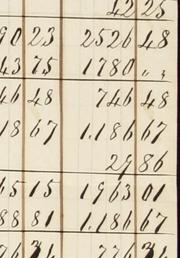 42 25
90 23 2526 48
43 75 1780 〃 〃
46 48 746 48
18 67 1.186 67
29 86
65 15 1963 01
88 81 1.186 67
76 34 776 34